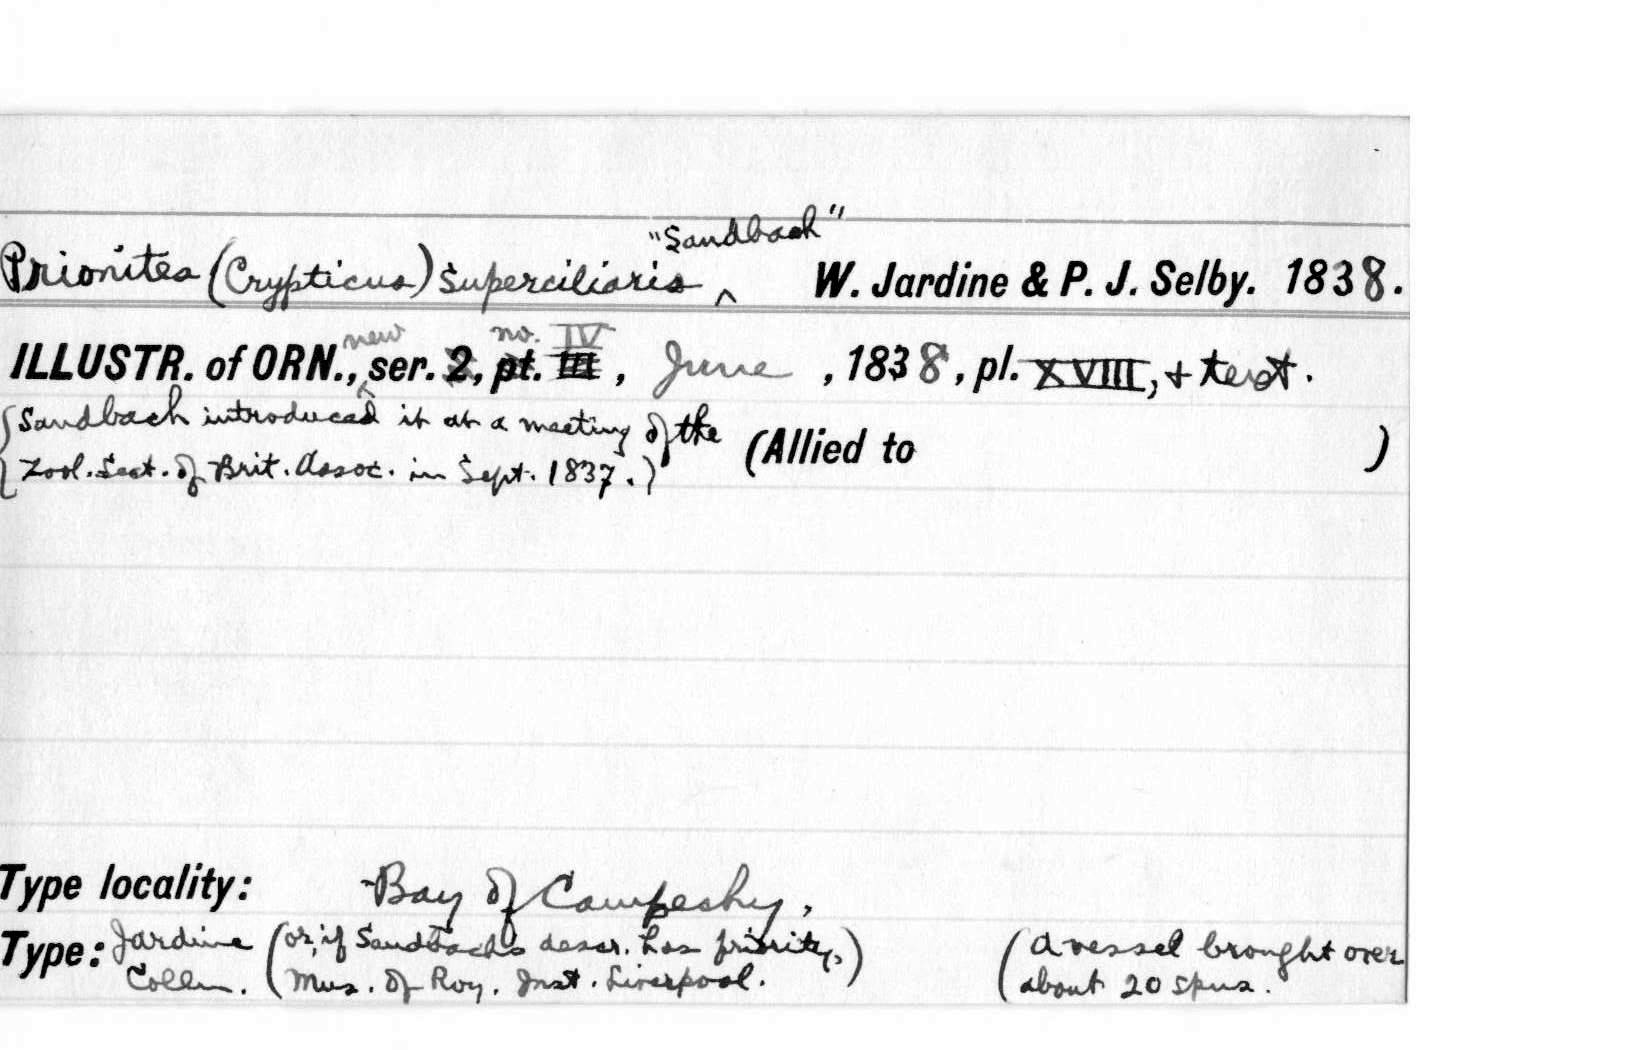 Prionites (Crypticus) superciliaris ^ "Sandbach" W. Jardine & P. J. Selby. 1838.
ILLUSTR. of ORN., new ser. 2, pt. III no. IV, June, 1838, pl. XVIII, + text.
(Sandbach introduced it at a meeting of the
Zool. Sect. of Brit. Assoc. in Sept. 1837.) (Allied to )
Type locality: Bay of Campeshy,
Type: Jardine (or, if Sandbach's descr. has priority, (A vessel brought over
Colln. Mus. of Roy. Inst. Liverpool.) about 20 spms.